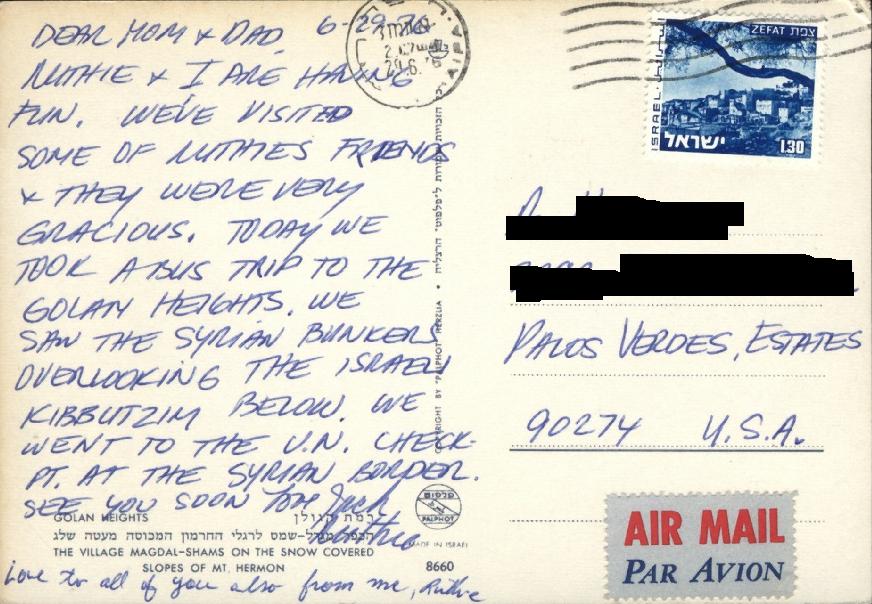 DEAR MOM & DAD, 6-29-76
RUTHIE & I ARE HAVING
FUN. WE'VE VISITED
SOME OF RUTHIES FRIENDS
& THEY WERE VERY
GRACIOUS. TODAY WE
TOOK A BUS TRIP TO THE
GOLAN HEIGHTS. WE
SAW THE SYRIAN BUNKERS
OVERLOOKING THE ISRAELI
KIBBUTZIM BELOW. WE
WENT TO THE U.N. CHECK-
PT. AT THE SYRIAN BORDER.
SEE YOU SOON Love Jack
Ruthie
GOLAN HEIGHTS
רמת הגולן
הכפר מג'דל-שמס לרגלי החרמון המכוסה מעטה שלג
THE VILLAGE MAGDAL-SHAMS ON THE SNOW COVERED
SLOPES OF MT. HERMON
8660
Love to all of you also from me, Ruthie
COPYRIGHT BY "PALPHOT" HERZLIA •
פלפוט
PALPHOT
MADE IN ISRAEL
ZEFAT צפת
ISRAEL
ישראל
1.30
PALOS VERDES, ESTATES
90274 U.S.A.
AIR MAIL
PAR AVION